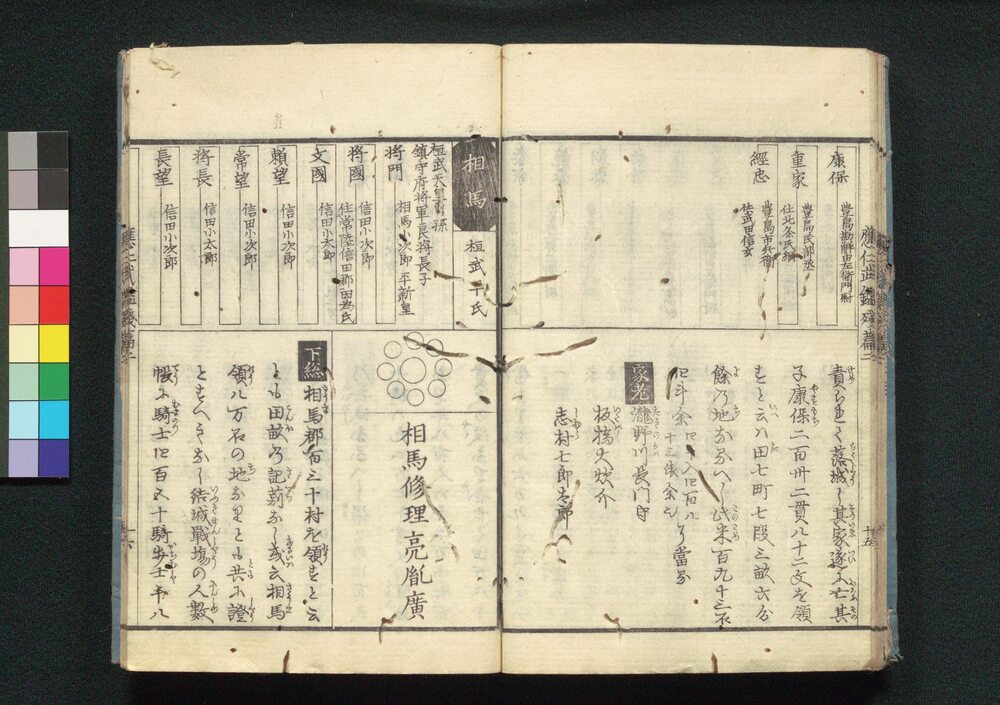 康保
豊島勘解由左衛門尉
重家
豊島民部丞
仕北条氏綱
經忠
豊島市兵衛
仕武田信玄
責らまく落城し其家遂に亡其
子康保二百卅二貫八十二文を領
すと云八田七町七段三畝六分
餘乃地なるへし此米百九十三石
家老
瀧野川長門守
板橋大炊介
志村七郎太郎
應仁武鑑殘篇二
十五
相馬
桓武平氏
桓武天皇
鎮守府将軍良将長子
将門
相馬小次郎平新皇
将國
信田小次郎
住常陸信田郡因為氏
文國
信田小太郎
頼望
信田小次郎
常望
信田小次郎
将長
信田小太郎
長望
信田小次郎
相馬修理亮胤廣
下総
相馬郡百三十村を領すと云
とも田畝乃記
相馬
領八万石の地なりとも共に證
とすへきなし結城戰場の人數
騎士
百五十騎歩士
應仁武鑑殘篇二
十六